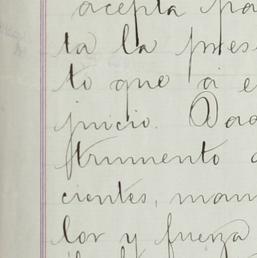 acepta pa
ta la pres
to que a e
juicio. Dad
strumento
cientes, man
lor y fuerza